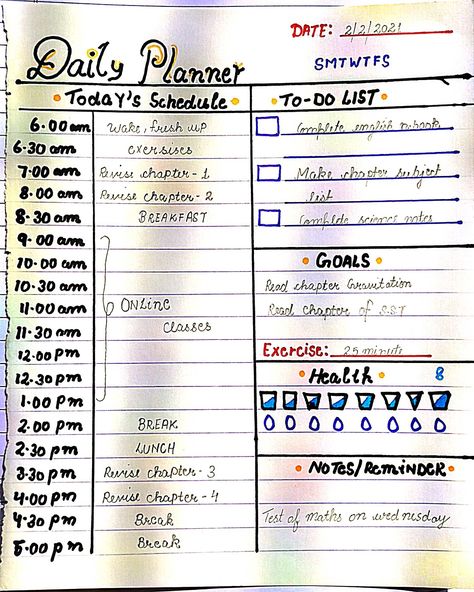 DATE: 2/2/2021
Daily Planner
SMTWTFS
Today's Schedule
6.00am Wake, fresh up
6.30 am exersises
7.00 am Revise chapter - 1
8.00 am Revise chapter - 2
8.30 am BREAKFAST
9.00 am
10.00 am
10.30 am
11.00 am ONLinc
11.30 am Classes
12.00 pm
12.30 pm
1.00 Pm
2.00 pm BREAK
2.30 pm LUNCH
3.30 pm Revise chapter - 3
4.00 pm Revise chapter - 4
4.30 pm Break
5.00 pm Break
TO-DO LIST
Complete english n.book
Make chapter subject
list
Complete science notes
GOALS
Read chapter Gravitation
Read chapter of S.S.T
Exercise: 25 minute
Health 8
NOTES/REMINDER
Test of maths on wednesday